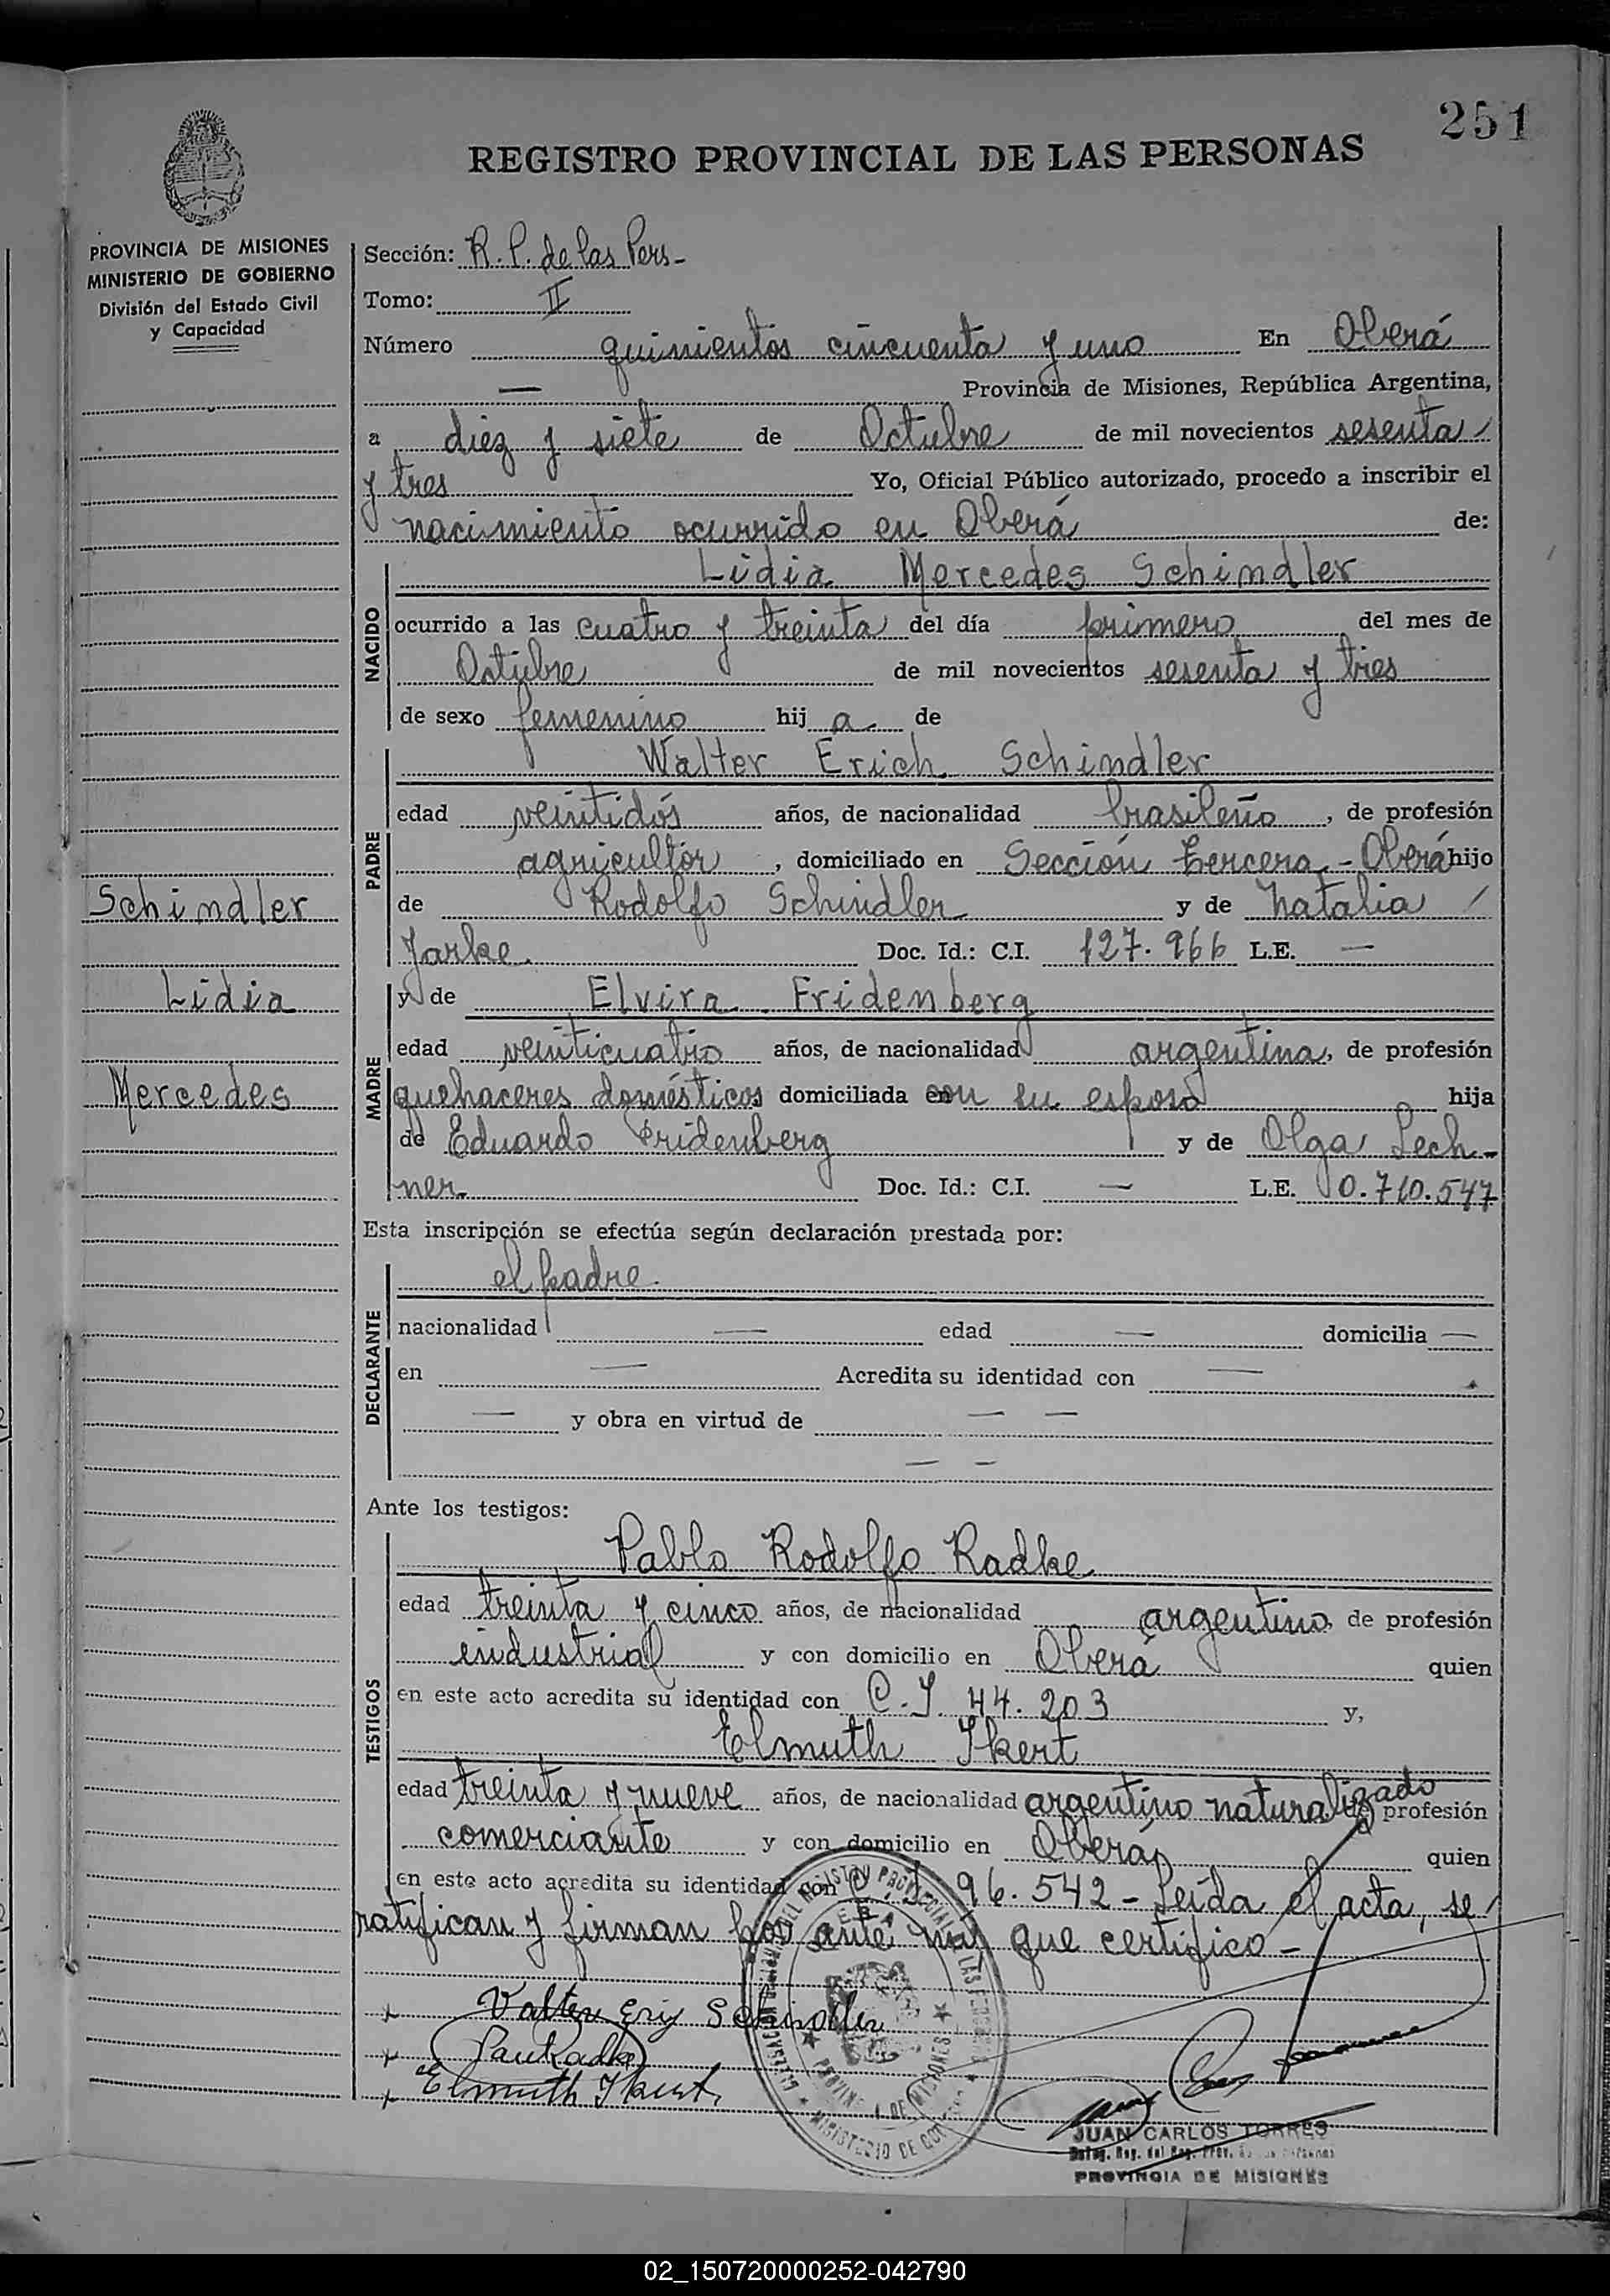 251
REGISTRO PROVINCIAL DE LAS PERSONAS
PROVINCIA DE MISIONES
MINISTERIO DE GOBIERNO
División del Estado Civil
y Capacidad
Schindler
Lidia
Mercedes
Sección: R. P. de las Pers-
Tomo: II
Número quinientos cincuenta y uno En Oberá
— Provincia de Misiones, República Argentina,
a diez y siete de Octubre de mil novecientos sesenta
y tres Yo, Oficial Público autorizado, procedo a inscribir el
nacimiento ocurrido en Oberá de:
NACIDO
Lidia Mercedes Schindler
ocurrido a las cuatro y treinta del día primero del mes de
Octubre de mil novecientos sesenta y tres
de sexo femenino hij a de
PADRE
Walter Erich Schindler
edad veintidós años, de nacionalidad brasileño, de profesión
agricultor, domiciliado en Sección tercera - Oberá hijo
de Rodolfo Schindler y de Natalia
Jarke. Doc. Id.: C.I. 127.966 L.E. —
MADRE
y de Elvira Fridenberg
edad veinticuatro años, de nacionalidad argentina, de profesión
quehaceres domésticos domiciliada con su esposo hija
de Eduardo Fridenberg y de Olga Lech-
ner. Doc. Id.: C.I. — L.E. 0.710.547
Esta inscripción se efectúa según declaración prestada por:
DECLARANTE
el padre.
nacionalidad — edad — domicilia —
en — Acredita su identidad con —
— y obra en virtud de — —
— —
Ante los testigos:
TESTIGOS
Pablo Rodolfo Radke
edad treinta y cinco años, de nacionalidad argentino, de profesión
industrial y con domicilio en Oberá quien
en este acto acredita su identidad con C. I. 44.203 y,
Elmuth Ikert
edad treinta y nueve años, de nacionalidad argentino naturalizado de profesión
comerciante y con domicilio en Oberá, quien
en este acto acredita su identidad con C. I. 96.542 - Leída el acta, se
ratifican y firman por ante mí que certifico -
Walter Eriy Schindler
Paul Radke
Elmuth Ikert
JUAN CARLOS TORRES
PROVINCIA DE MISIONES
02_150720000252-042790